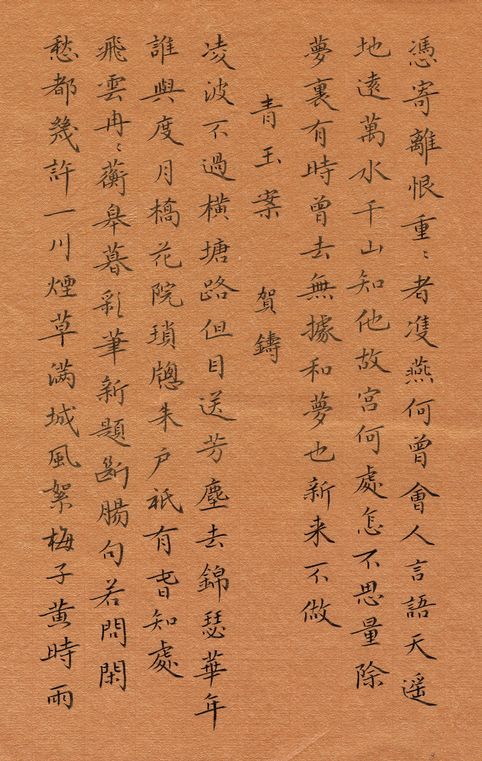 憑寄離恨重〻者㕠燕何曾會人言語天遥
地遠萬水千山知他故宫何處怎不思量除
夢裏有時曾去無據和夢也新来不做
青玉案　賀鑄
凌波不過橫塘路但目送芳塵去錦瑟華年
誰與度月橋花院瑣牕朱戶祇有萅知處
飛雲冉〻蘅皋暮彩筆新題斷腸句若問閑
愁都幾許一川煙草滿城風絮梅子黄時雨